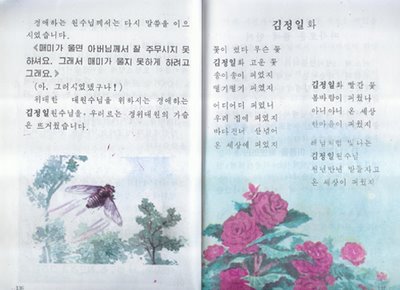 경애하는 원수님께서는 다시 말씀을 이으
시였습니다.
《매미가 울면 아버님께서 잘 주무시지 못
하셔요. 그래서 매미가 울지 못하게 하려고
그래요.》
(아, 그러시였댔구나!)
위대한 대원수님을 위하시는 경애하는
김정일원수님을 우러르는 경위대원의 가슴
은 뜨거웠습니다.
136
김정일화
꽃이 폈다 무슨 꽃
김정일화 고운 꽃
송이송이 펴었지
열기열기 펴었지
어디어디 펴었니
우리 집에 펴었지
바다건너 산넘어
온 세상에 펴었지
김정일화 빨간 꽃
봄바람이 펴웠나
아니아니 온 세상
한마음이 펴웠지
해님처럼 빛나는
김정일원수님
천년만년 받들자고
온 세상이 펴웠지